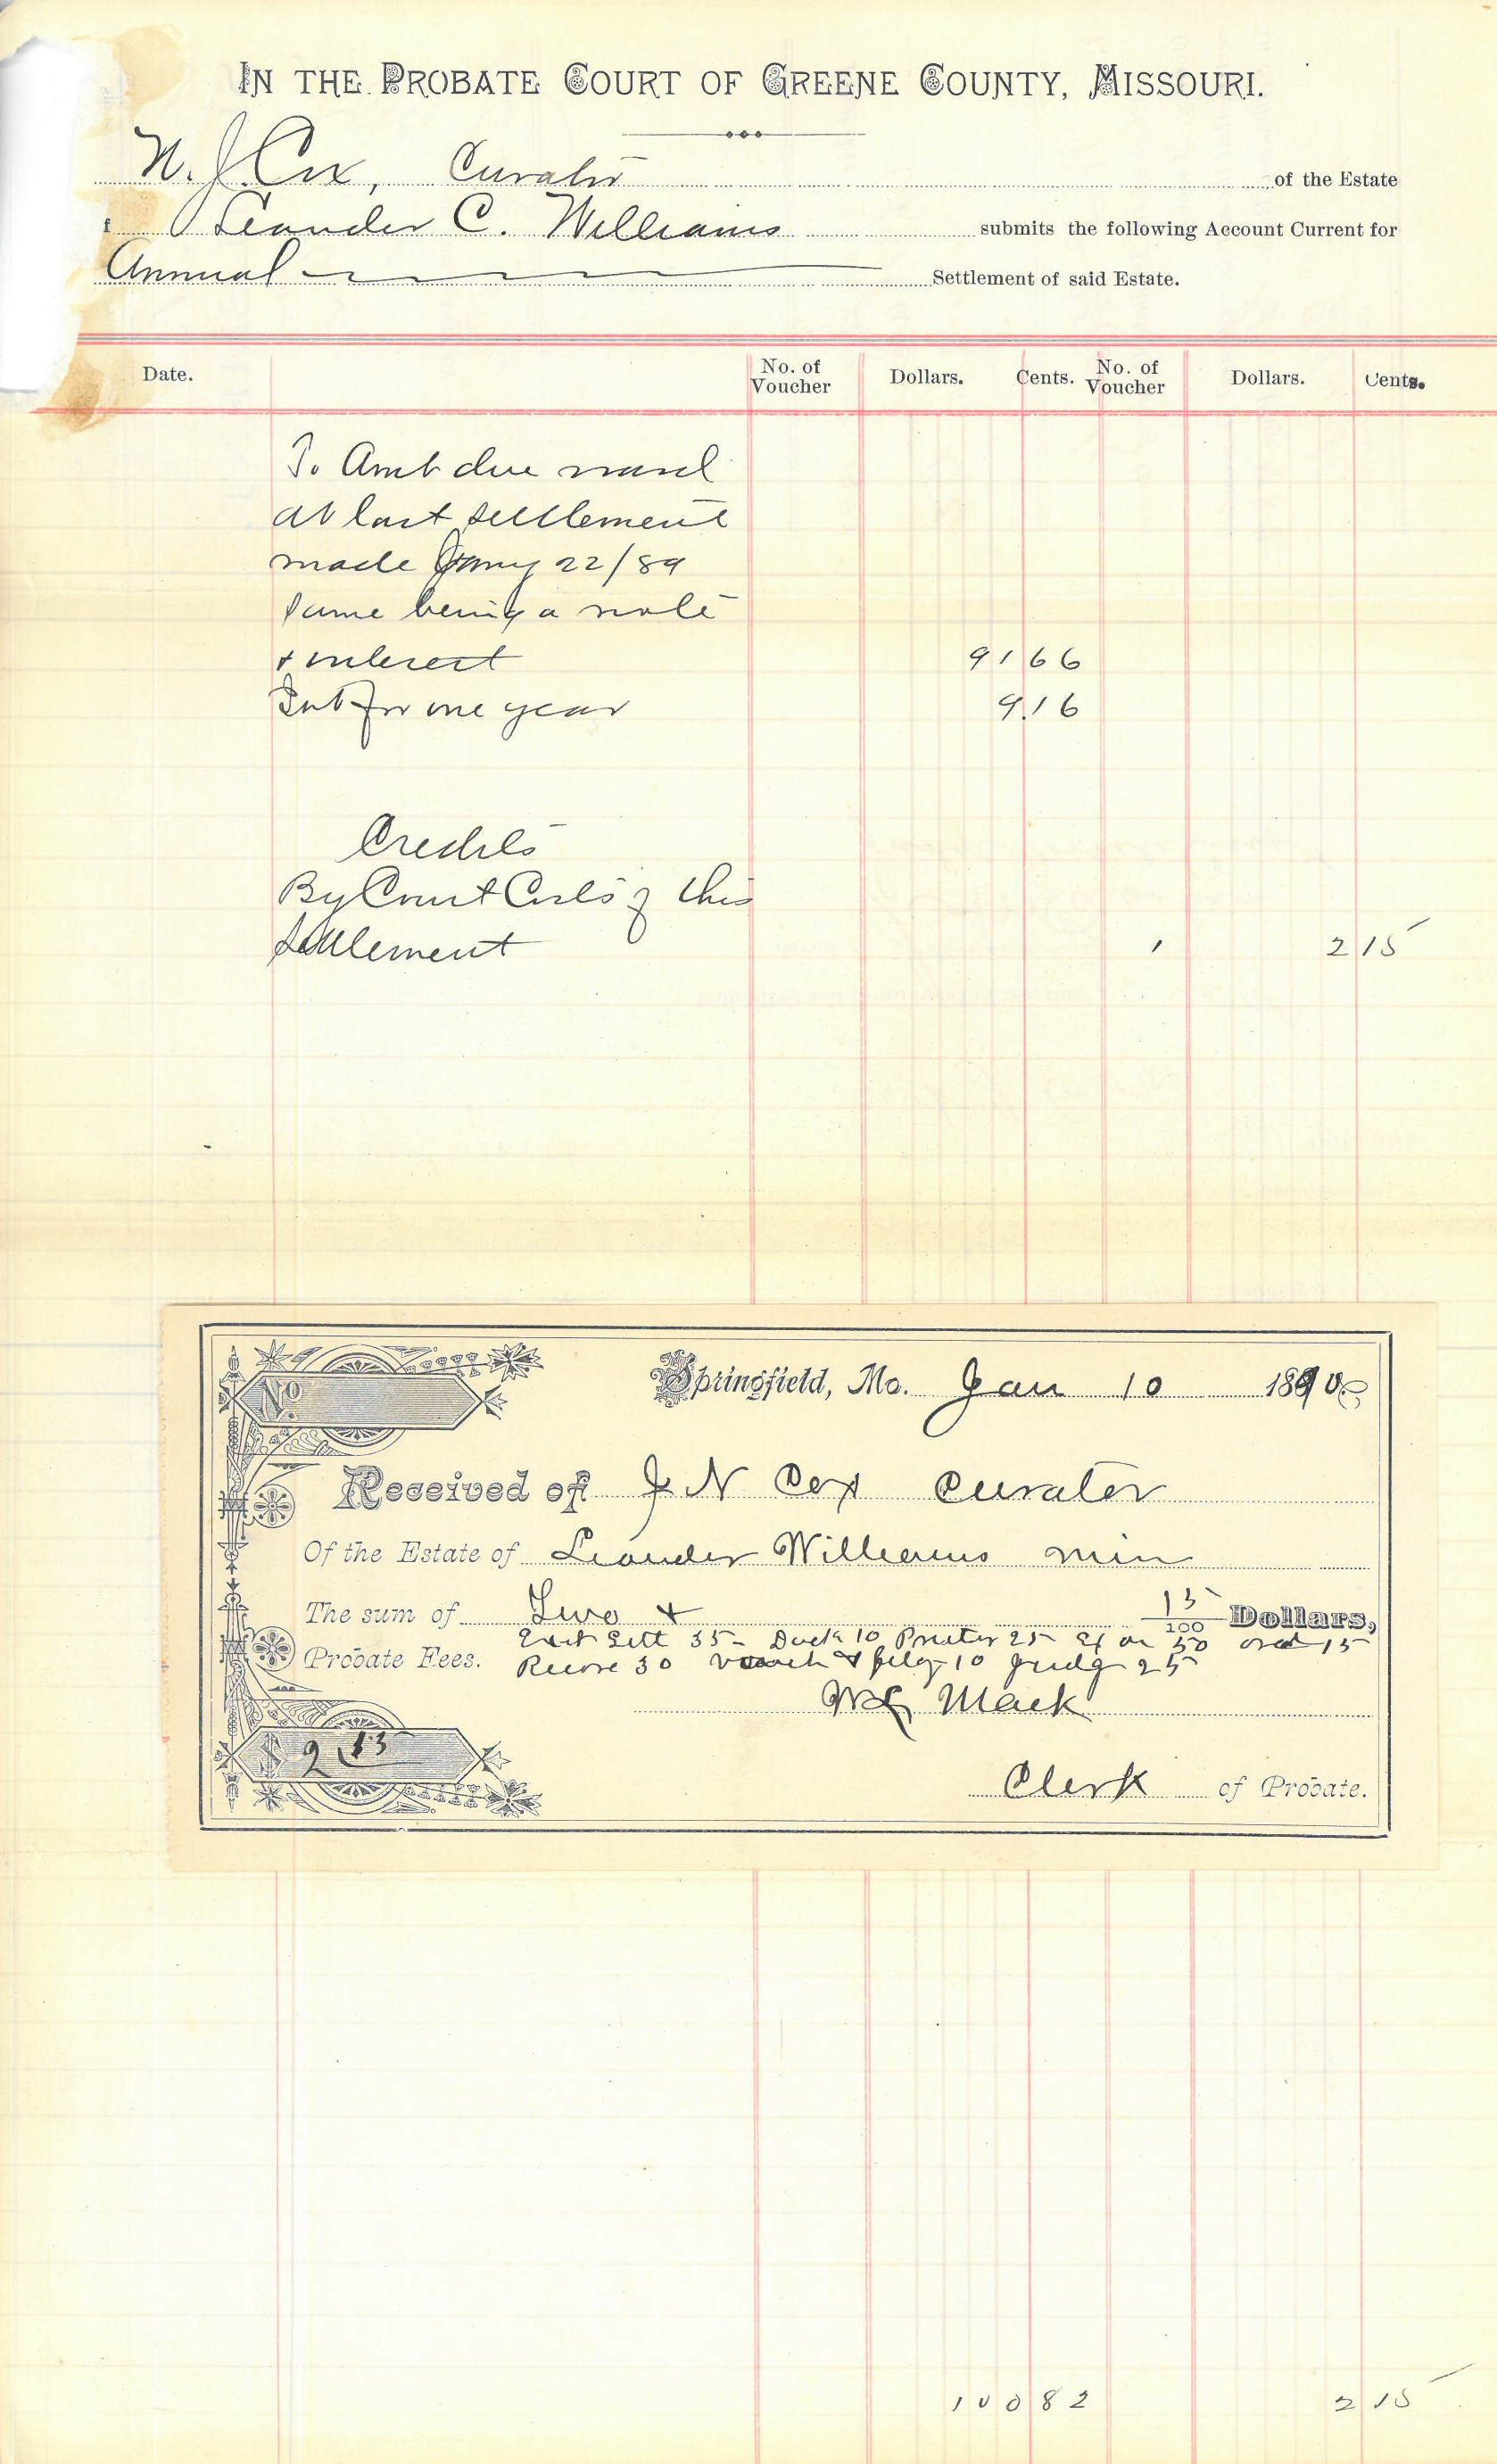 IN THE PROBATE COURT OF GREENE COUNTY, MISSOURI.
N. J. Cox, Curator of the Estate
f Leander C. Williams submits the following Account Current for
Annual Settlement of said Estate.
Date. No. of Voucher Dollars. Cents. No. of Voucher Dollars. Cents.
To Amt due ward
at last settlement
made Jany 22/89
same being a note
+ interest 91 66
Int for one year 9.16
Credits
By Court Costs of this
settlement 1 2 15
Springfield, Mo. Jan 10 1890
No
Received of J N Cox Curator
Of the Estate of Leander Williams min
The sum of Two + 15/100 Dollars,
Sett 35 Dock 10 Printer 25 50 ord 15
Probate Fees. Recore 30 vouch & filg 10 Judg 25
Mack
$ 2.15
Clerk of Probate.
100 82 2 15